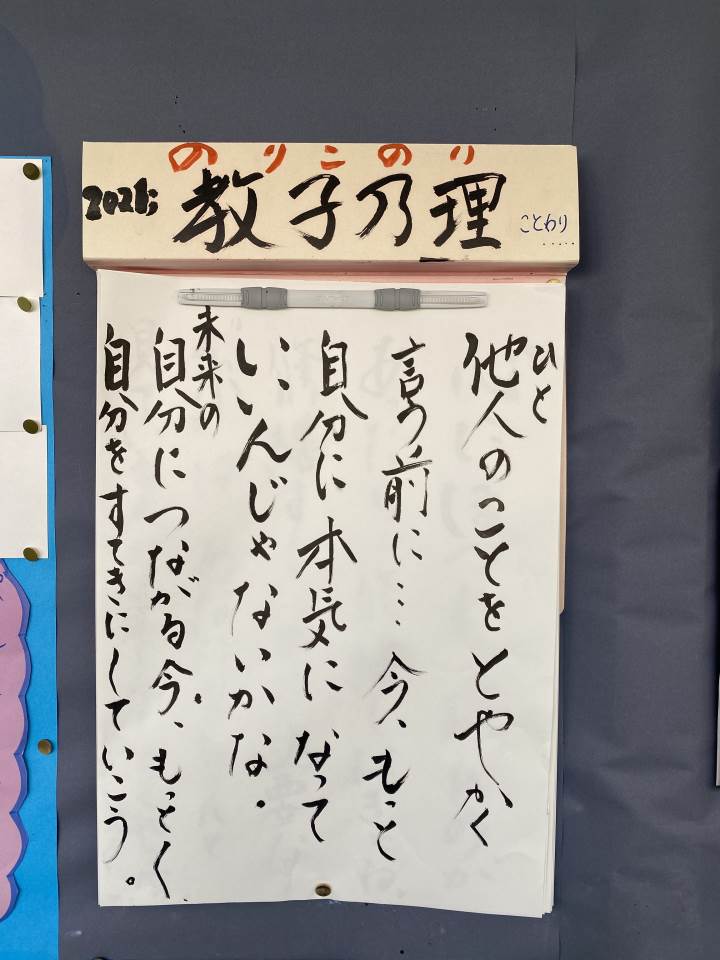 のりこのり
2021;
教子乃理
ことわり
ひと
他人のことをとやかく
言う前に… 今、もっと
自分に本気になって
いいんじゃないかな.
未来の
自分につながる今、もっと〱、
自分をすてきにしていこう。